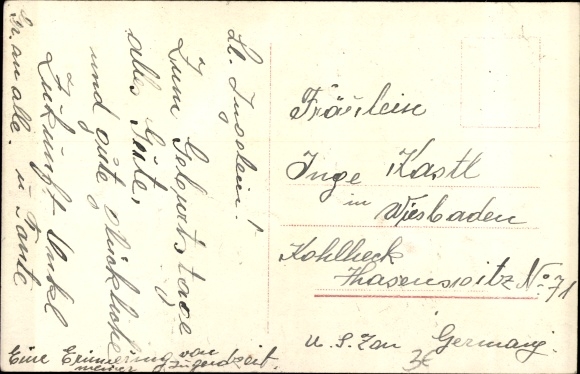 Lb. Ingelein!
Zum Geburtstage
alles Gute,
und gute glückliche
Zukunft Onkel
u Tante
Gr. an alle.
Eine Erinnerung von
meiner Jugendzeit.
Fräulein
Inge Kastl
in Wiesbaden
Kohlheck
Hasenspitz No 71
U. S. Zon Germany.
3€